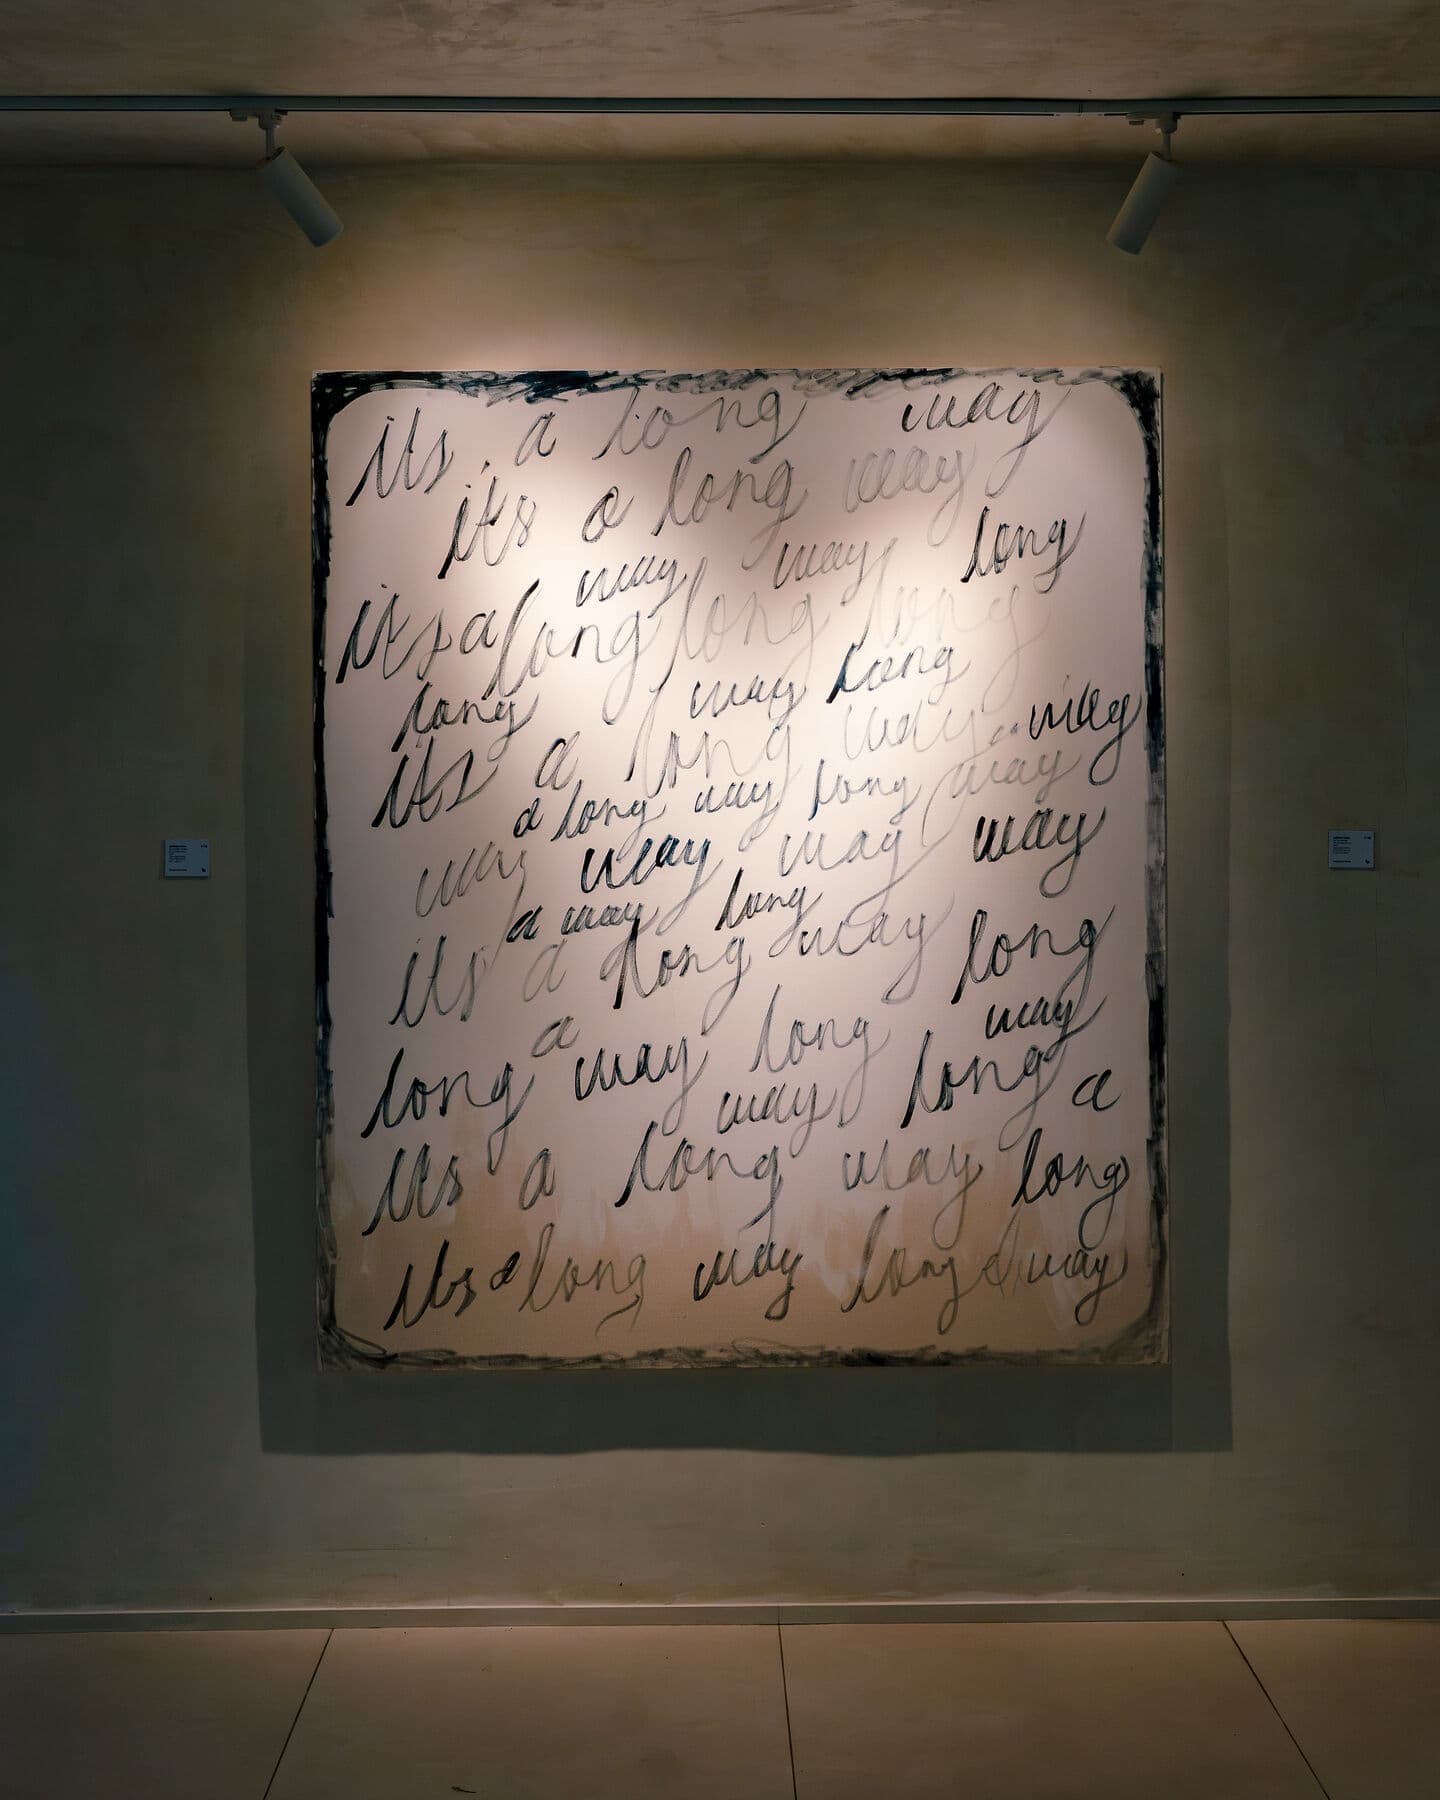 its a long way
its a long way
way way long
its a long long long
long way long
its a long way way
a long way long way
way way way way
a way long
its a long way long
a way
long way long long
way a
its a long way long
its a long way long a way